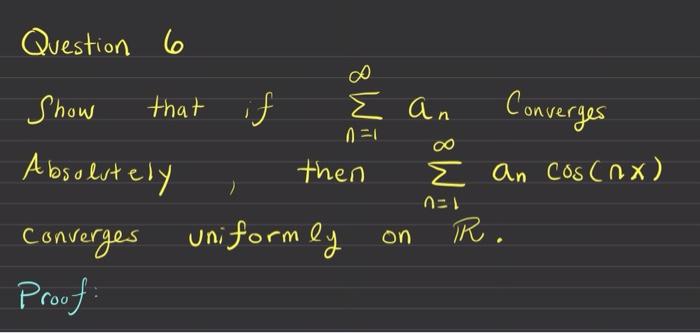 Question 6
Show that if ∞∑n=1 an Converges
Absolutely, then ∞∑n=1 an cos(nx)
converges uniformly on ℝ.
Proof: